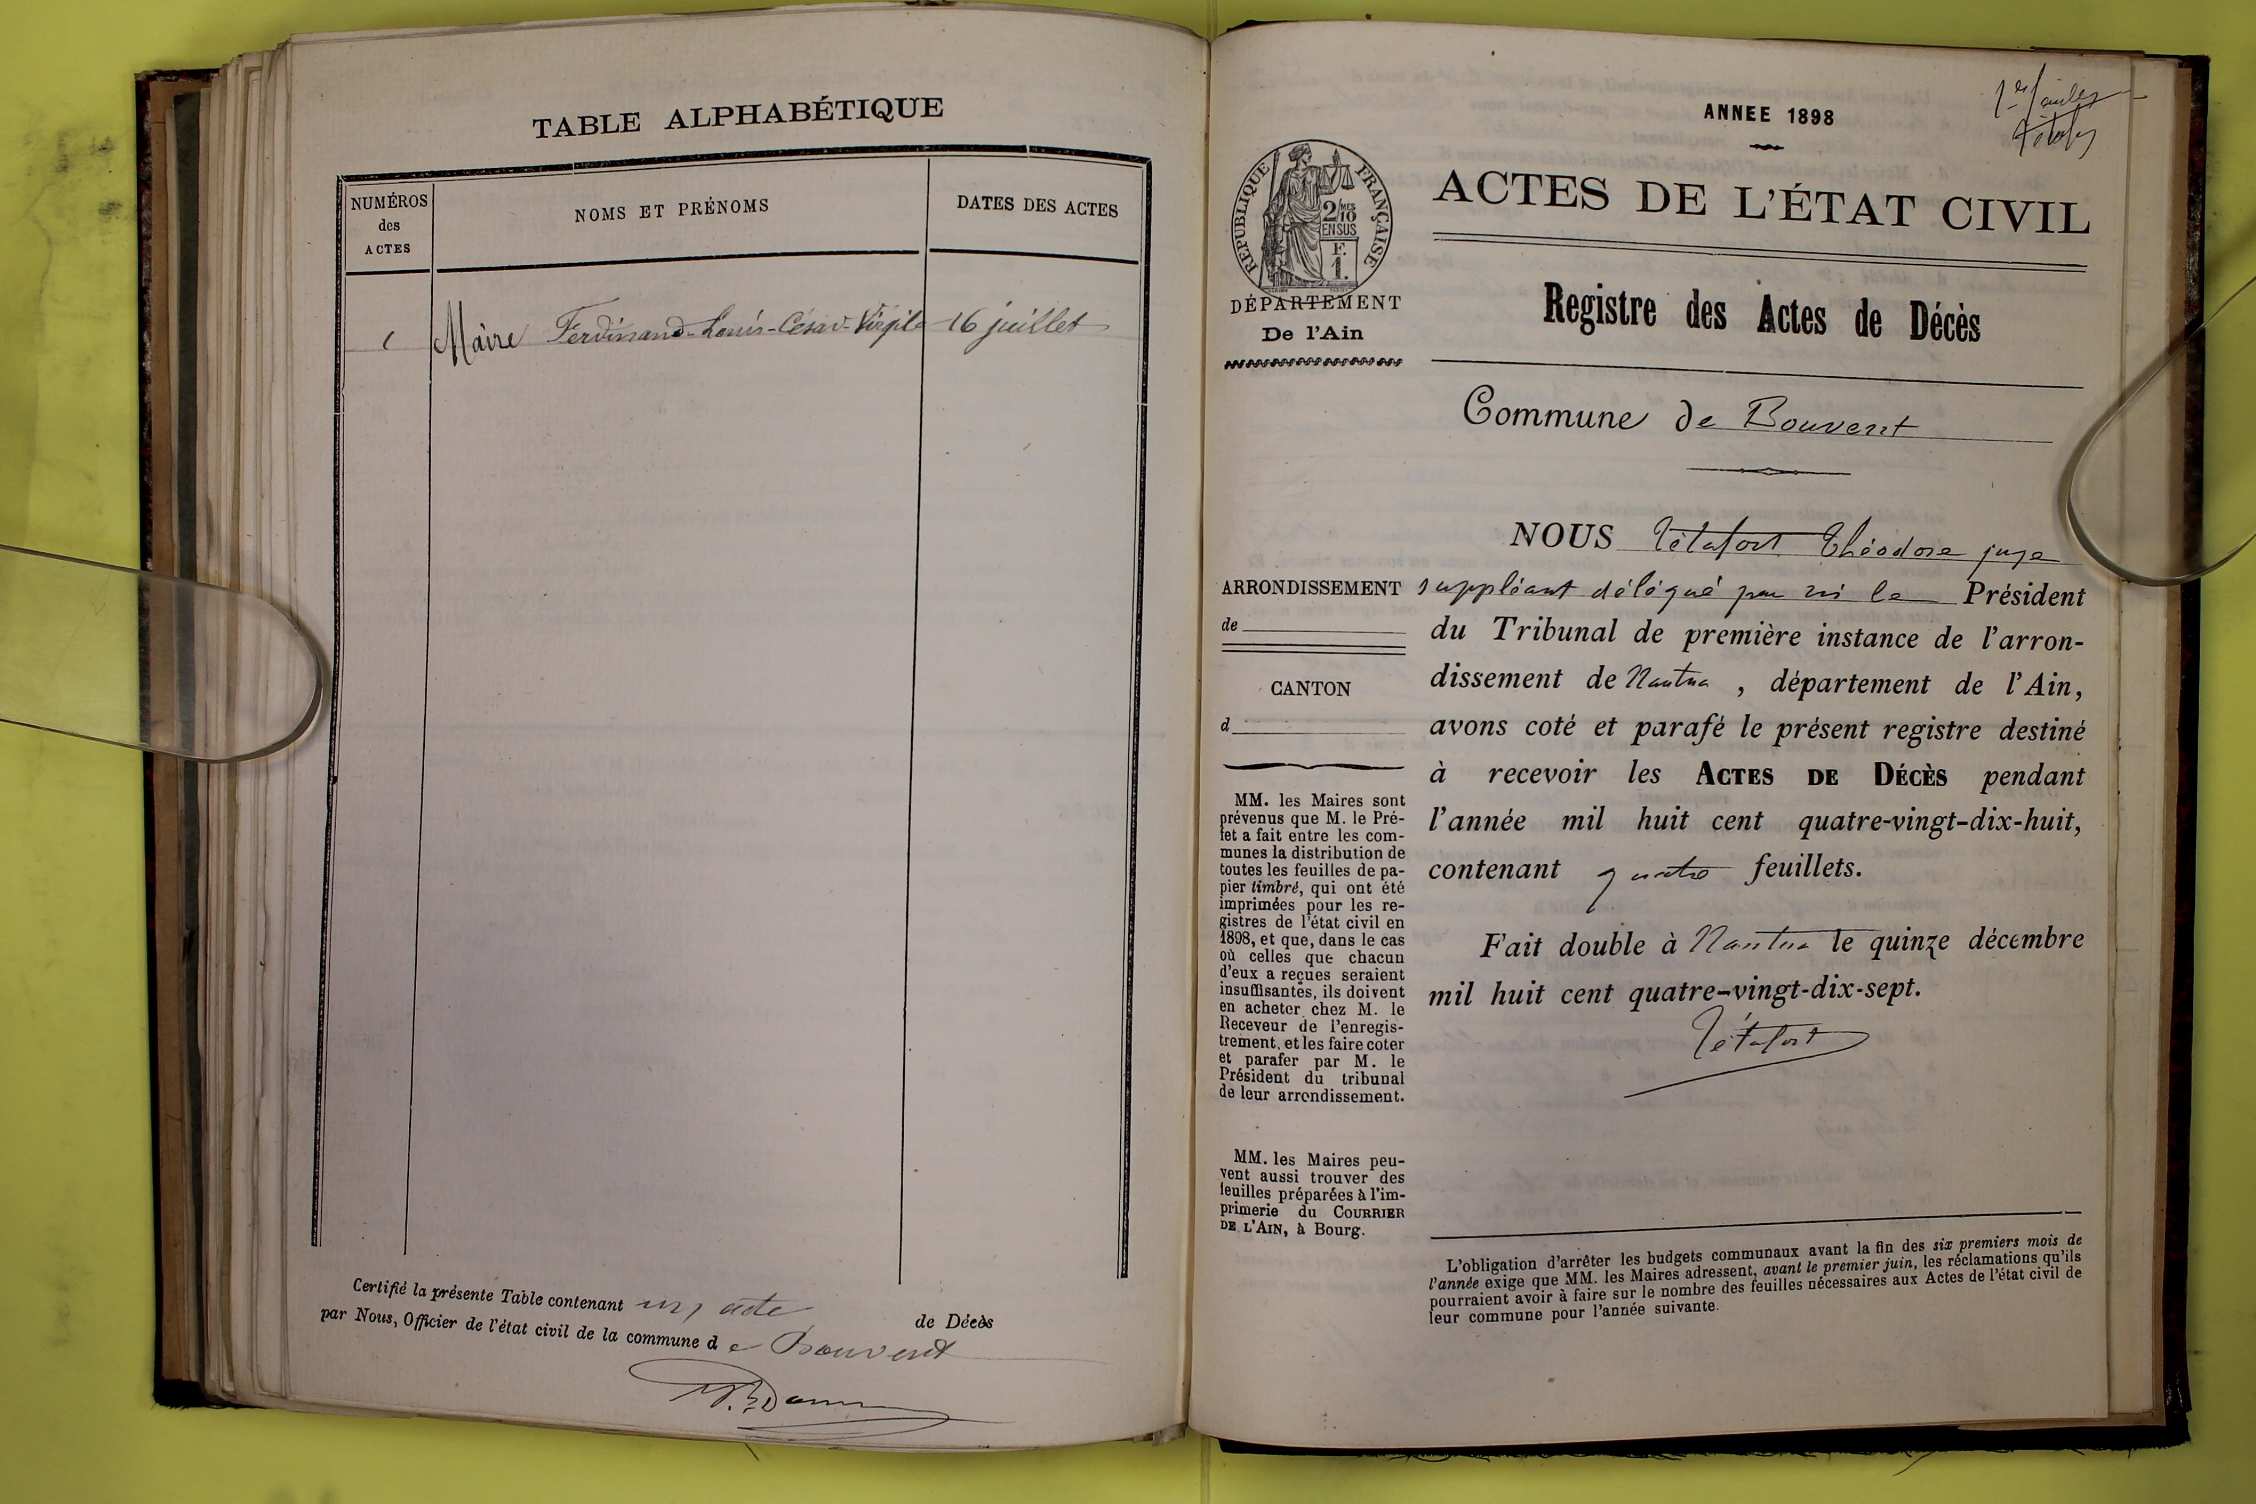 TABLE ALPHABÉTIQUE
NUMÉROS
des
ACTES
NOMS ET PRÉNOMS
DATES DES ACTES
1 Maire Ferdinand-Louis-César-Virgile 16 juillet
Certifié la présente Table contenant un acte de Décès
par Nous, Officier de l'état civil de la commune de Bouvent
ANNEE 1898
ACTES DE L'ÉTAT CIVIL
RÉPUBLIQUE FRANÇAISE
2/10 MES
EN SUS
F.
1.
DÉPARTEMENT
De l'Ain
Registre des Actes de Décès
Commune de Bouvent
ARRONDISSEMENT
de
CANTON
d
MM. les Maires sont
prévenus que M. le Pré-
fet a fait entre les com-
munes la distribution de
toutes les feuilles de pa-
pier timbré, qui ont été
imprimées pour les re-
gistres de l'état civil en
1898, et que, dans le cas
où celles que chacun
d'eux a reçues seraient
insuffisantes, ils doivent
en acheter chez M. le
Receveur de l'enregis-
trement, et les faire coter
et parafer par M. le
Président du tribunal
de leur arrondissement.
MM. les Maires peu-
vent aussi trouver des
feuilles préparées à l'im-
primerie du COURRIER
DE L'AIN, à Bourg.
NOUS Tétafort Théodore juge
suppléant délégué par le Président
du Tribunal de première instance de l'arron-
dissement de Nantua, département de l'Ain,
avons coté et parafé le présent registre destiné
à recevoir les ACTES DE DÉCÈS pendant
l'année mil huit cent quatre-vingt-dix-huit,
contenant quatre feuillets.
Fait double à Nantua le quinze décembre
mil huit cent quatre-vingt-dix-sept.
Tétafort
L'obligation d'arrêter les budgets communaux avant la fin des six premiers mois de
l'année exige que MM. les Maires adressent, avant le premier juin, les réclamations qu'ils
pourraient avoir à faire sur le nombre des feuilles nécessaires aux Actes de l'état civil de
leur commune pour l'année suivante.